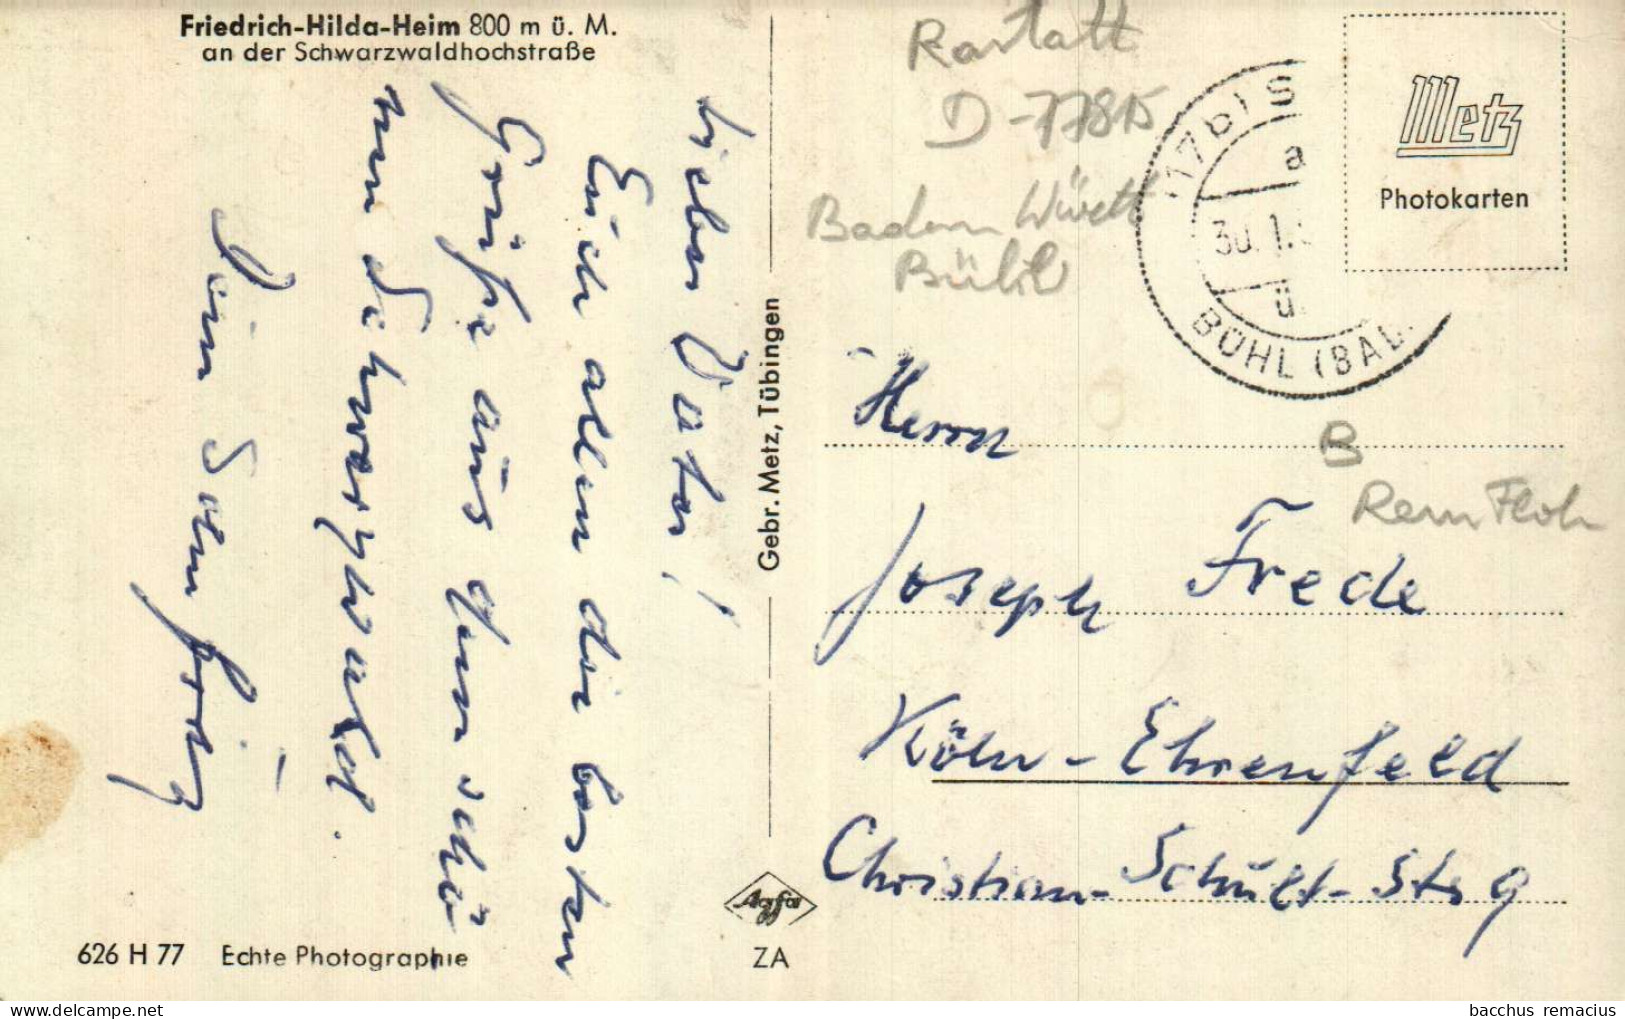 Friedrich-Hilda-Heim 800 m ü. M.
an der Schwarzwaldhochstraße
Lieber Vater!
Euch allen die besten
Grüße aus dem schö
nen Schwarzwald.
Dein Sohn
626 H 77 Echte Photographie
Gebr. Metz, Tübingen
Agfa
ZA
Rastatt
D-77815
Baden Württ
Bühl
(17b) S
a
30. 1.
ü.
BÜHL (BAD.
Metz
Photokarten
B
Herrn
Joseph Frede
Köln-Ehrenfeld
Christian-Schult-Str 9
bacchus remacius